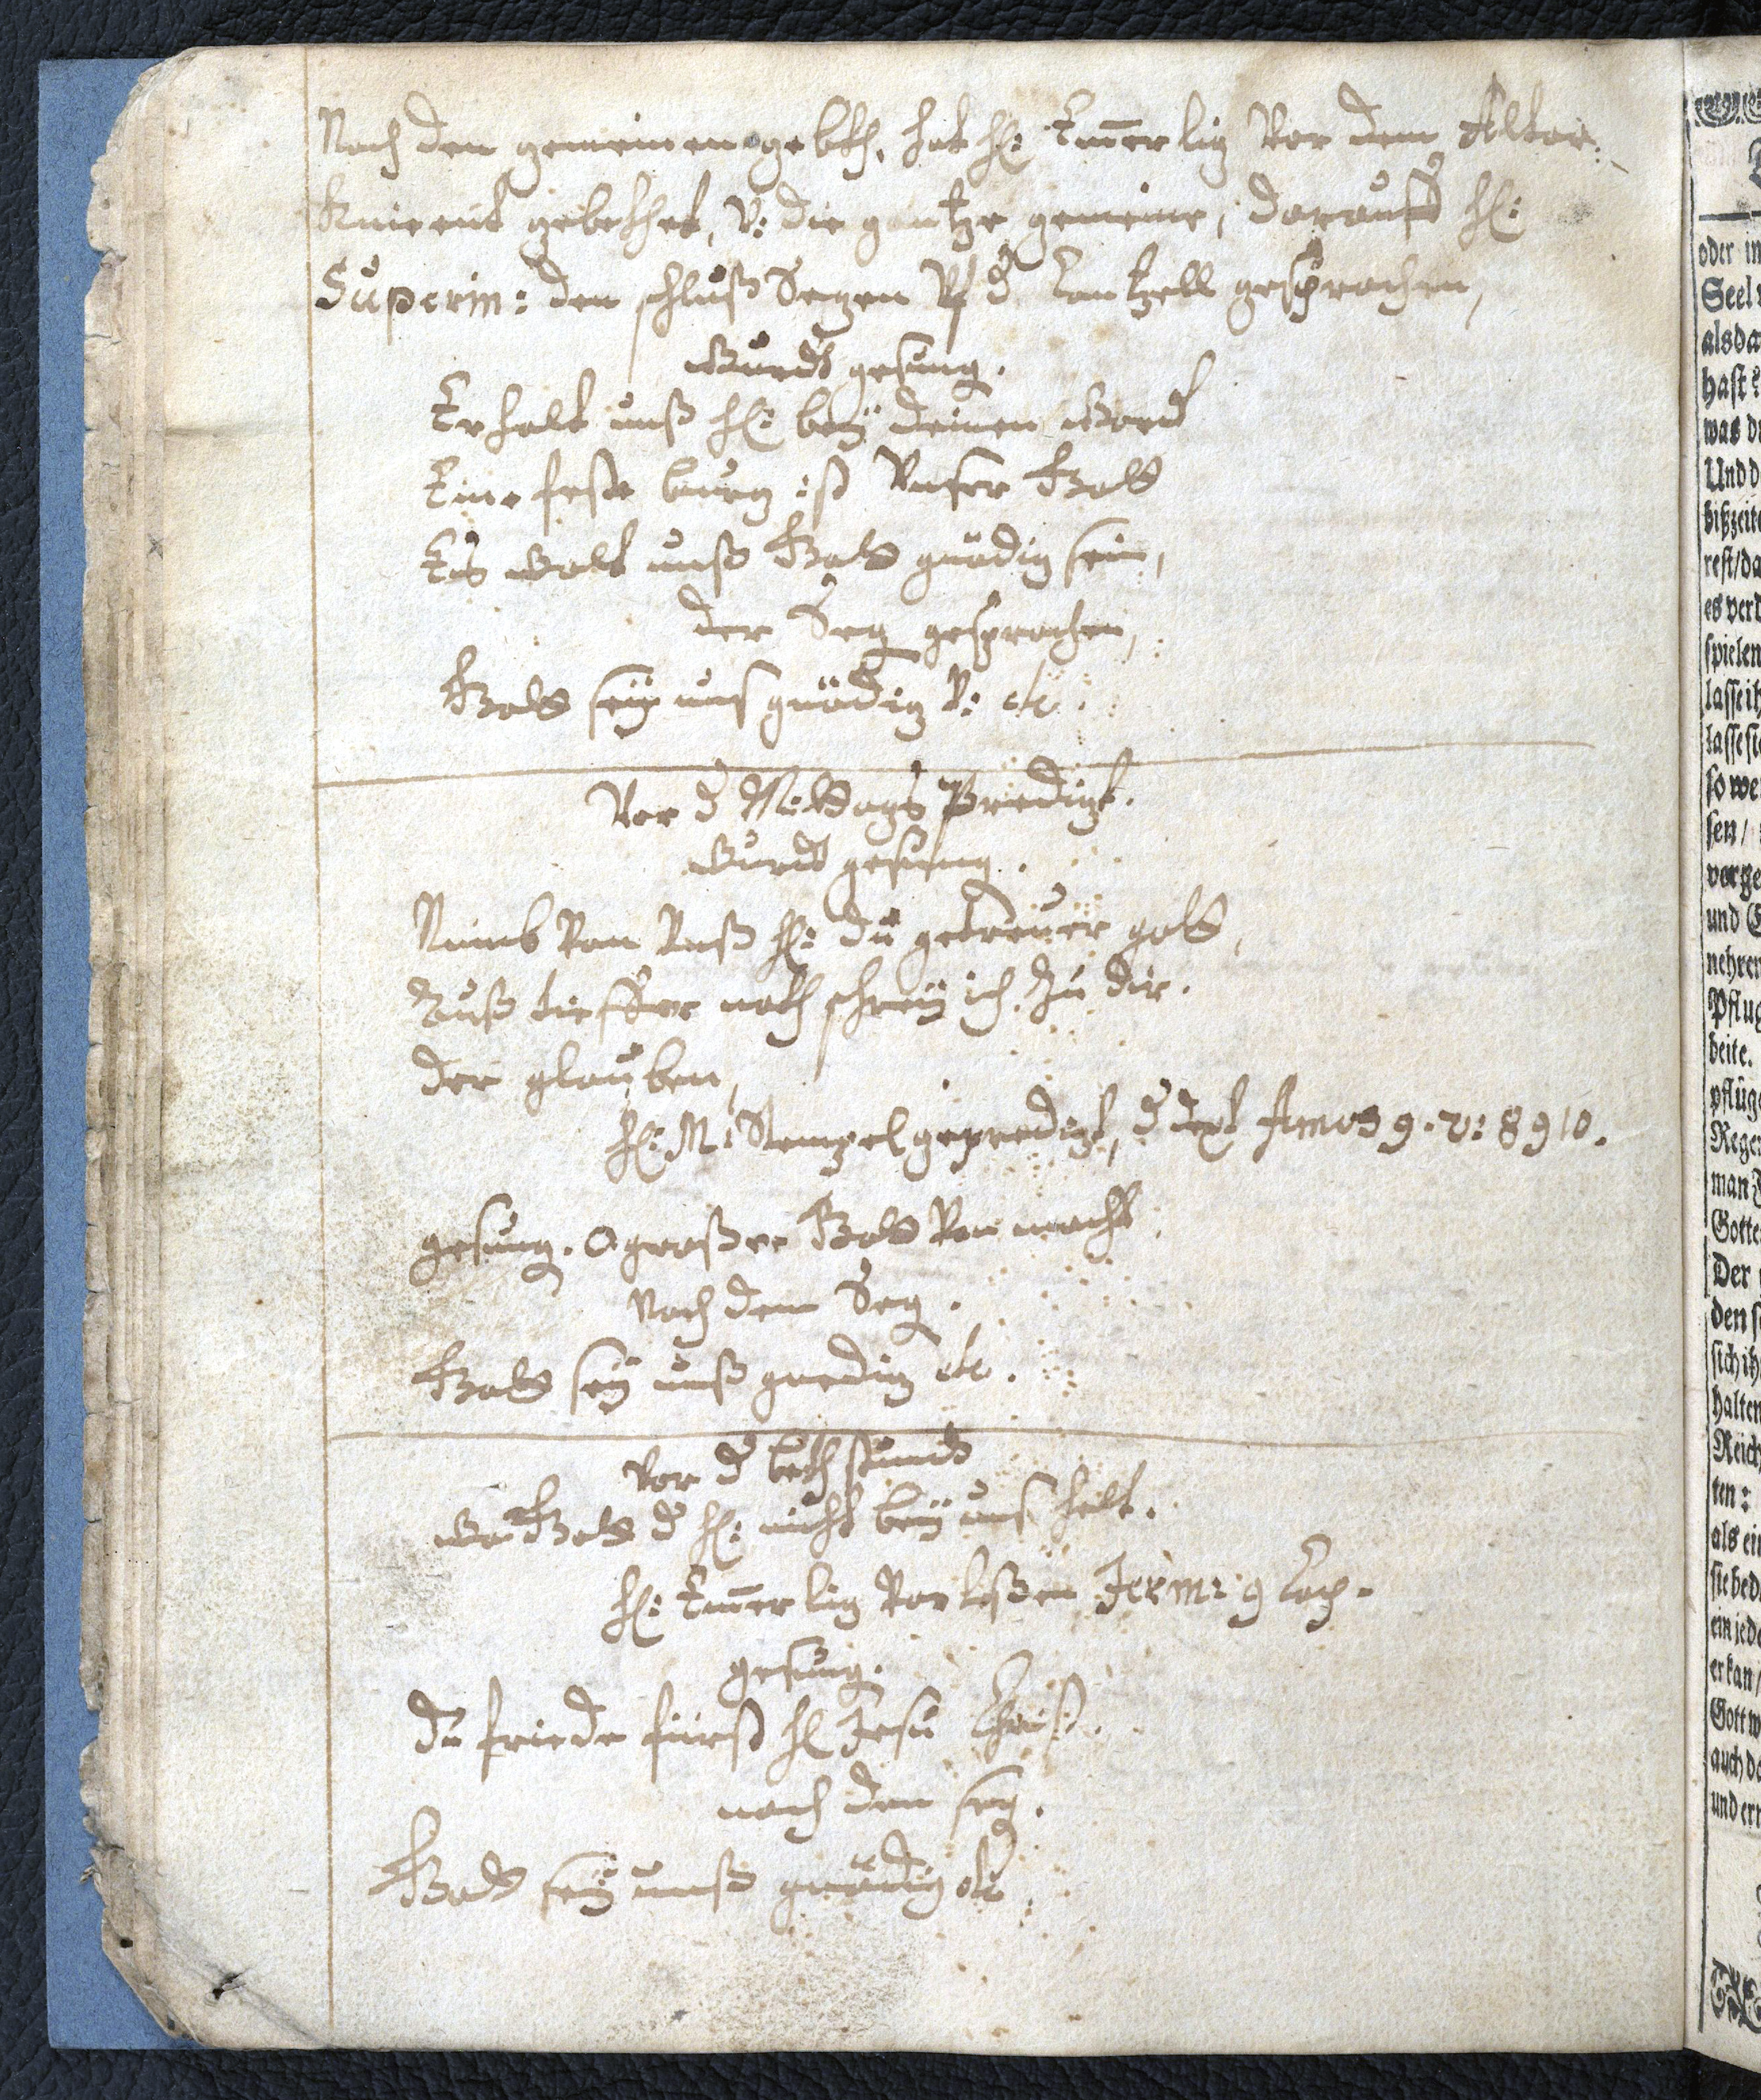 Nach den gemeinen gebth, hat H: Em̄erlig Vor dem Altar.
Knieent gebethet, v: die gantze gemeine, darauff H:
Superin: den schluß Segen Vf d Cantzell gesprochen,
Wurdt gesung.
Erhalt unß H: bey deinen Wordt
Eine feste burg ist Vnser Gott
Es wolt unß Gott gnädig sein,
der Seg gesprochen,
Gott sey uns gnädig v: etc.
Vor d Mittags Predigt.
Wurdt gesung.
Nimb Von Vnß H: du getreuer gott,
Auß tieffer noth schrey ich zu dir.
der glauben,
H: M: Stempel gepredigt, d text Amos 9. v: 8 9 10.
gesung. O großer Gott Von macht.
Nach dem Seg.
Gott sey unß gnedig etc.
Vor d bethstund
Wo Gott d H: nicht bey uns helt.
H: Em̄erlig Vorleßen Jerm: 9 Cap.
gesung.
Du friede fürst H Jesu Christ.
nach den seg.
Gott sey unß gnädig etc
oder in
Seel
alsda
hast
was d
Und d
bißzeite
rest/da
es verd
spielen
lasse ih
lasse sie
so we
sen/
vorge
und E
nehren
Pflug
beite.
pflüge
Rege
man
Gotte
Der
den s
sich ih
halten
Reich
ten:
als ei
sie bed
ein jede
er kan/
Gott w
auch da
und er